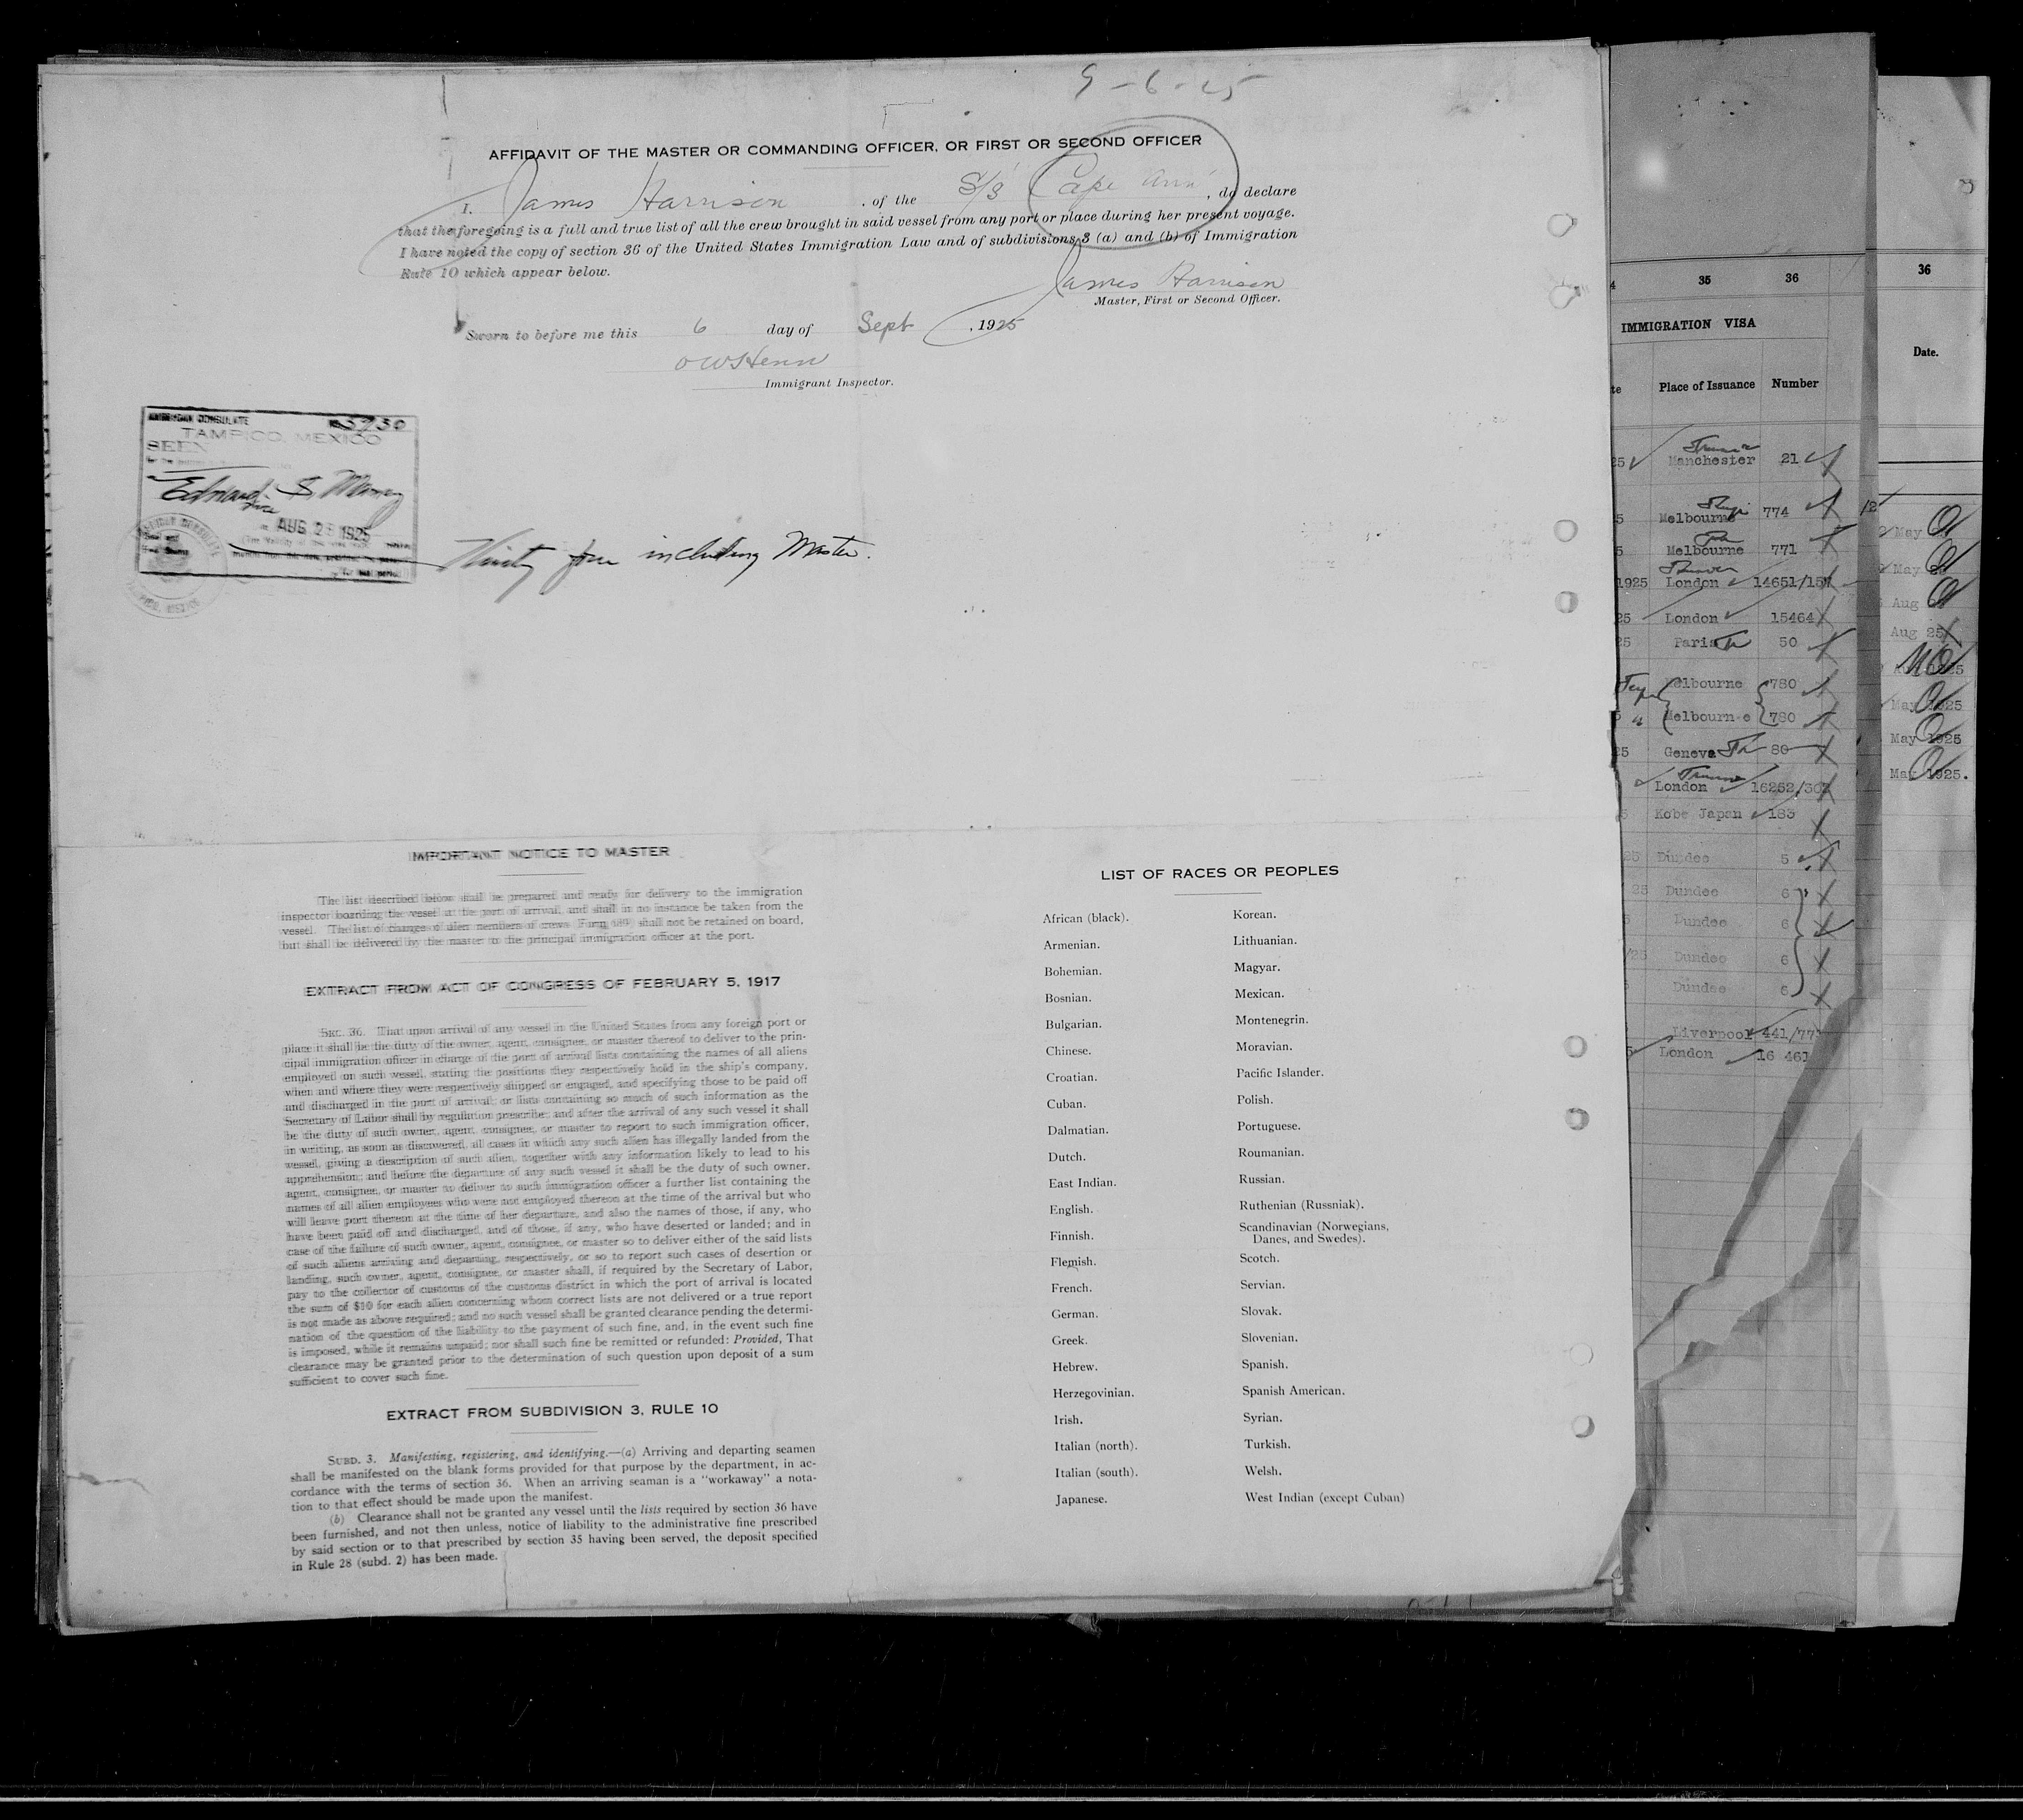 9-6-25
AFFIDAVIT OF THE MASTER OR COMMANDING OFFICER, OR FIRST OR SECOND OFFICER
I, James Harrison, of the S/S Cape Ann, do declare
that the foregoing is a full and true list of all the crew brought in said vessel from any port or place during her present voyage.
I have noted the copy of section 36 of the United States Immigration Law and of subdivisions 3 (a) and (b) of Immigration
Rule 10 which appear below.
James Harrison
Master, First or Second Officer.
Sworn to before me this 6 day of Sept, 1925
Immigrant Inspector.
AMERICAN CONSULATE
TAMPICO, MEXICO
SEEN
Edward S.
AUG 1925
Thirty four including Master.
IMPORTANT NOTICE TO MASTER
The list described below shall be prepared and ready for delivery to the immigration
inspector boarding the vessel at the port of arrival, and shall in no instance be taken from the
vessel. The list of changes of alien members of crews Form 689 shall not be retained on board,
but shall be delivered by the master to the principal immigration officer at the port.
EXTRACT FROM ACT OF CONGRESS OF FEBRUARY 5, 1917
SEC. 36. That upon arrival of any vessel in the United States from any foreign port or
place it shall be the duty of the owner, agent, consignee, or master thereof to deliver to the prin-
cipal immigration officer in charge of the port of arrival lists containing the names of all aliens
employed on such vessel, stating the positions they respectively hold in the ship's company,
when and where they were respectively shipped or engaged, and specifying those to be paid off
and discharged in the port of arrival; or lists containing so much of such information as the
Secretary of Labor shall by regulation prescribe; and after the arrival of any such vessel it shall
be the duty of such owner, agent, consignee, or master to report to such immigration officer,
in writing, as soon as discovered, all cases in which any such alien has illegally landed from the
vessel, giving a description of such alien, together with any information likely to lead to his
apprehension; and before the departure of any such vessel it shall be the duty of such owner,
agent, consignee, or master to deliver to such immigration officer a further list containing the
names of all alien employees who were not employed thereon at the time of the arrival but who
will leave port thereon at the time of her departure, and also the names of those, if any, who
have been paid off and discharged, and of those, if any, who have deserted or landed; and in
case of the failure of such owner, agent, consignee, or master so to deliver either of the said lists
of such aliens arriving and departing, respectively, or so to report such cases of desertion or
landing, such owner, agent, consignee, or master shall, if required by the Secretary of Labor,
pay to the collector of customs of the customs district in which the port of arrival is located
the sum of $10 for each alien concerning whom correct lists are not delivered or a true report
is not made as above required; and no such vessel shall be granted clearance pending the determi-
nation of the question of the liability to the payment of such fine, and, in the event such fine
is imposed, while it remains unpaid; nor shall such fine be remitted or refunded: Provided, That
clearance may be granted prior to the determination of such question upon deposit of a sum
sufficient to cover such fine.
EXTRACT FROM SUBDIVISION 3, RULE 10
SUBD. 3. Manifesting, registering, and identifying.—(a) Arriving and departing seamen
shall be manifested on the blank forms provided for that purpose by the department, in ac-
cordance with the terms of section 36. When an arriving seaman is a "workaway" a nota-
tion to that effect should be made upon the manifest.
(b) Clearance shall not be granted any vessel until the lists required by section 36 have
been furnished, and not then unless, notice of liability to the administrative fine prescribed
by said section or to that prescribed by section 35 having been served, the deposit specified
in Rule 28 (subd. 2) has been made.
LIST OF RACES OR PEOPLES
African (black).
Armenian.
Bohemian.
Bosnian.
Bulgarian.
Chinese.
Croatian.
Cuban.
Dalmatian.
Dutch.
East Indian.
English.
Finnish.
Flemish.
French.
German.
Greek.
Hebrew.
Herzegovinian.
Irish.
Italian (north).
Italian (south).
Japanese.
Korean.
Lithuanian.
Magyar.
Mexican.
Montenegrin.
Moravian.
Pacific Islander.
Polish.
Portuguese.
Roumanian.
Russian.
Ruthenian (Russniak).
Scandinavian (Norwegians,
Danes, and Swedes).
Scotch.
Servian.
Slovak.
Slovenian.
Spanish.
Spanish American.
Syrian.
Turkish.
Welsh.
West Indian (except Cuban)
35 36
IMMIGRATION VISA
Place of Issuance Number
Manchester 21
Melbourne 774
Melbourne 771
1925 London 14651/157
25 London 15464
25 Paris 50
Melbourne 780
Melbourne 780
25 Geneva 80
London 16252/303
Kobe Japan 183
25 Dundee 5
25 Dundee 6
Dundee 6
/25 Dundee 6
Dundee 6
Liverpool 441/77
London 16 461
36
Date.
May
May
Aug
Aug 25
May 1925
May 1925
May 1925.